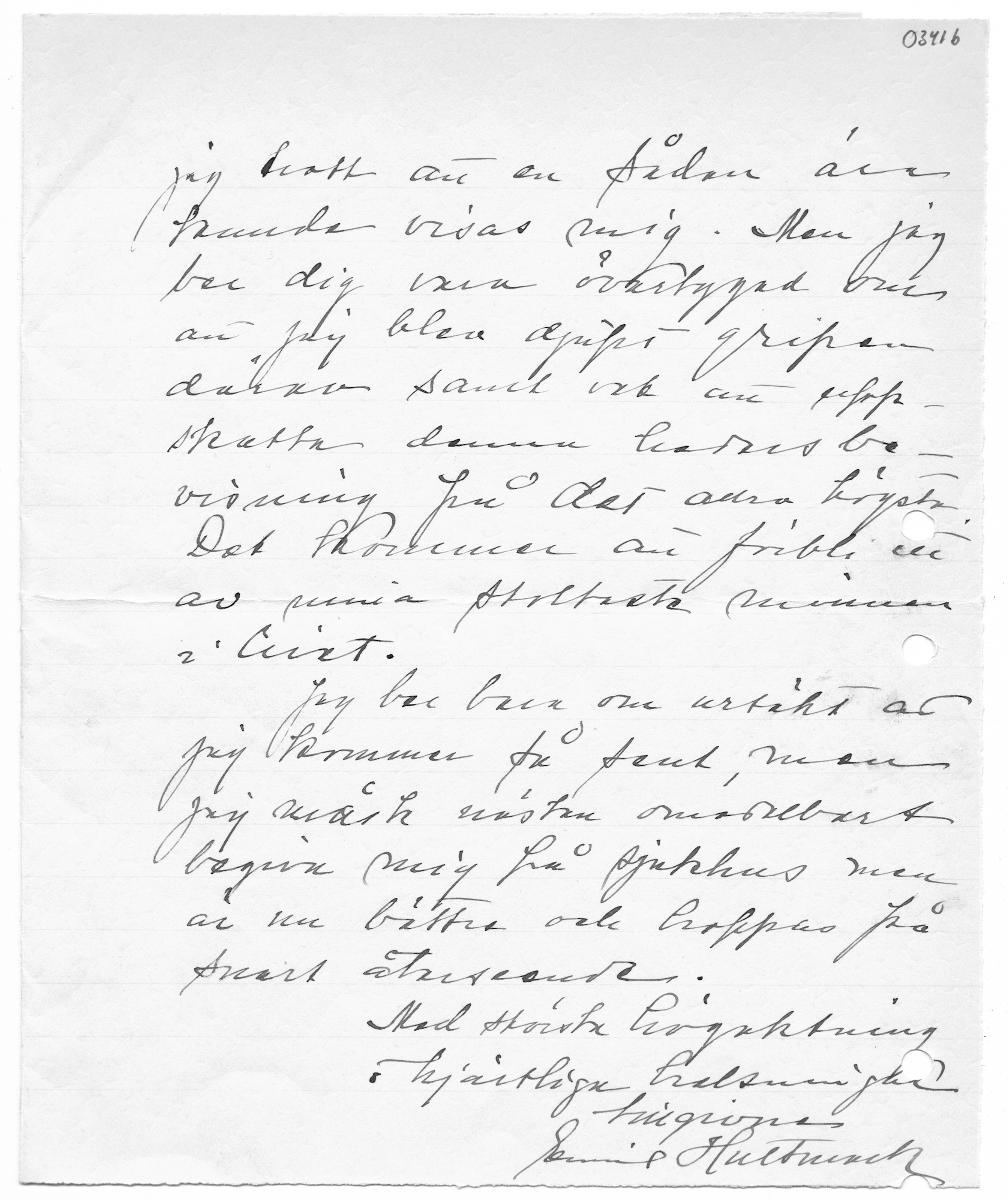 03416
jag trott att en sådan ära
kunde visas mig. Men jag
ber dig vara övertygad om
att jag blev djupt gripen
därav samt vet att upp-
skatta denna hedersbe-
visning på det allra högsta.
Det kommer att förbli ett
av mina stoltaste minnen
i livet.
Jag ber bara om ursäkt att
jag kommer så sent, men
jag måste nästan omedelbart
begiva mig på sjukhus men
är nu bättre och hoppas på
snart återseende.
Med största högaktning
o hjärtliga hälsningar
tillgivne
Emil Hultmark